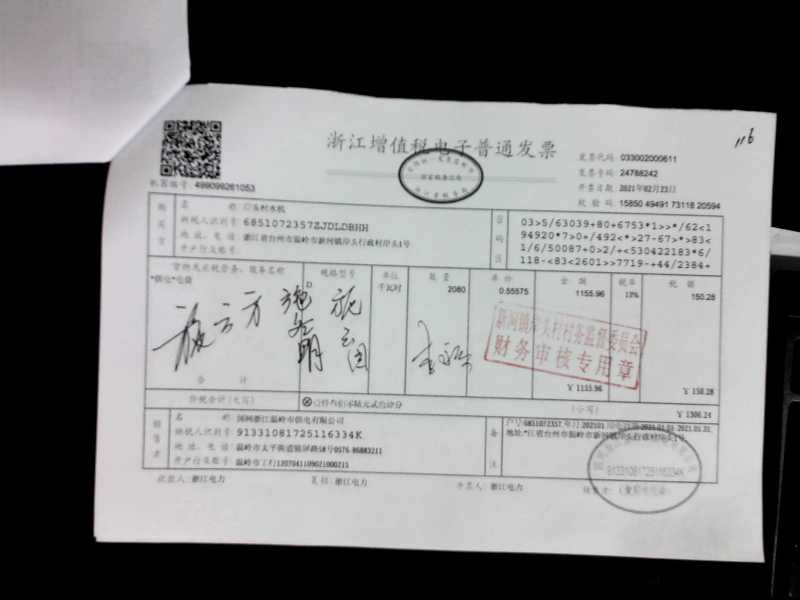 浙江增值税电子普通发票
116
发票代码: 033002000611
发票号码: 24788242
开票日期: 2021年02月23日
校验码: 15850 49491 73118 20594
机器编号: 499099261053
购买方
名称:
纳税人识别号: 6851072357ZJDLDBHH
地址、电话: 浙江省台州市温岭市新河镇岸头行政村岸头1号
开户行及账号:
密码区
03>5/63039+80+6753*1>>*/62<1
94920*7>0+/492<*>27-67>*>83<
1/6/50087+0>2/+<530422183*6/
118-<83<2601>>7719-+44/2384+
货物或应税劳务、服务名称 规格型号 单位 数量 单价 金额 税率 税额
*供电*电费 千瓦时 2080 0.55575 1155.96 13% 150.28
新河镇岸头村村务监督委员会
财务审核专用章
合计 ¥1155.96 ¥150.28
价税合计(大写) (小写) ¥1306.24
销售方
名称: 国网浙江温岭市供电有限公司
纳税人识别号: 91331081725116334K
地址、电话: 温岭市太平街道锦屏路58号0576-86883211
开户行及账号: 温岭市工行1207041109021000215
备注
户号:6851072357,年月:202101
地址:浙江省台州市温岭市新河镇岸头行政村岸头1号
91331081725116334K
收款人: 浙江电力 复核: 浙江电力 开票人: 浙江电力 销售方: